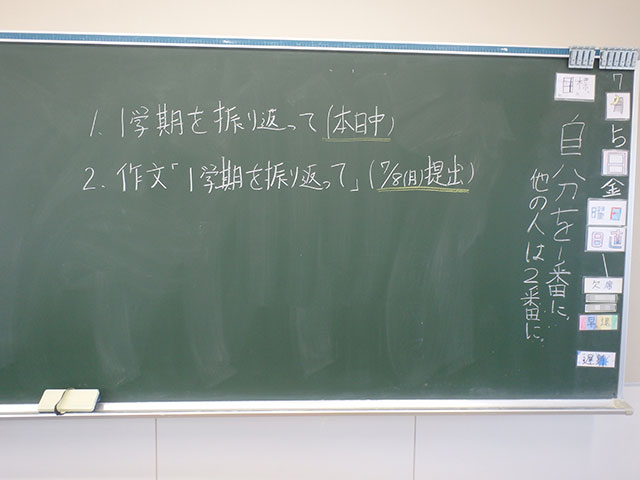 1. 1学期を振り返って(本日中)
2. 作文「1学期を振り返って」(7/8(月)提出)
目標
自分を1番に、
他の人は2番に。
7
月
5
日
金
曜
日
日直
欠席
早退
遅刻